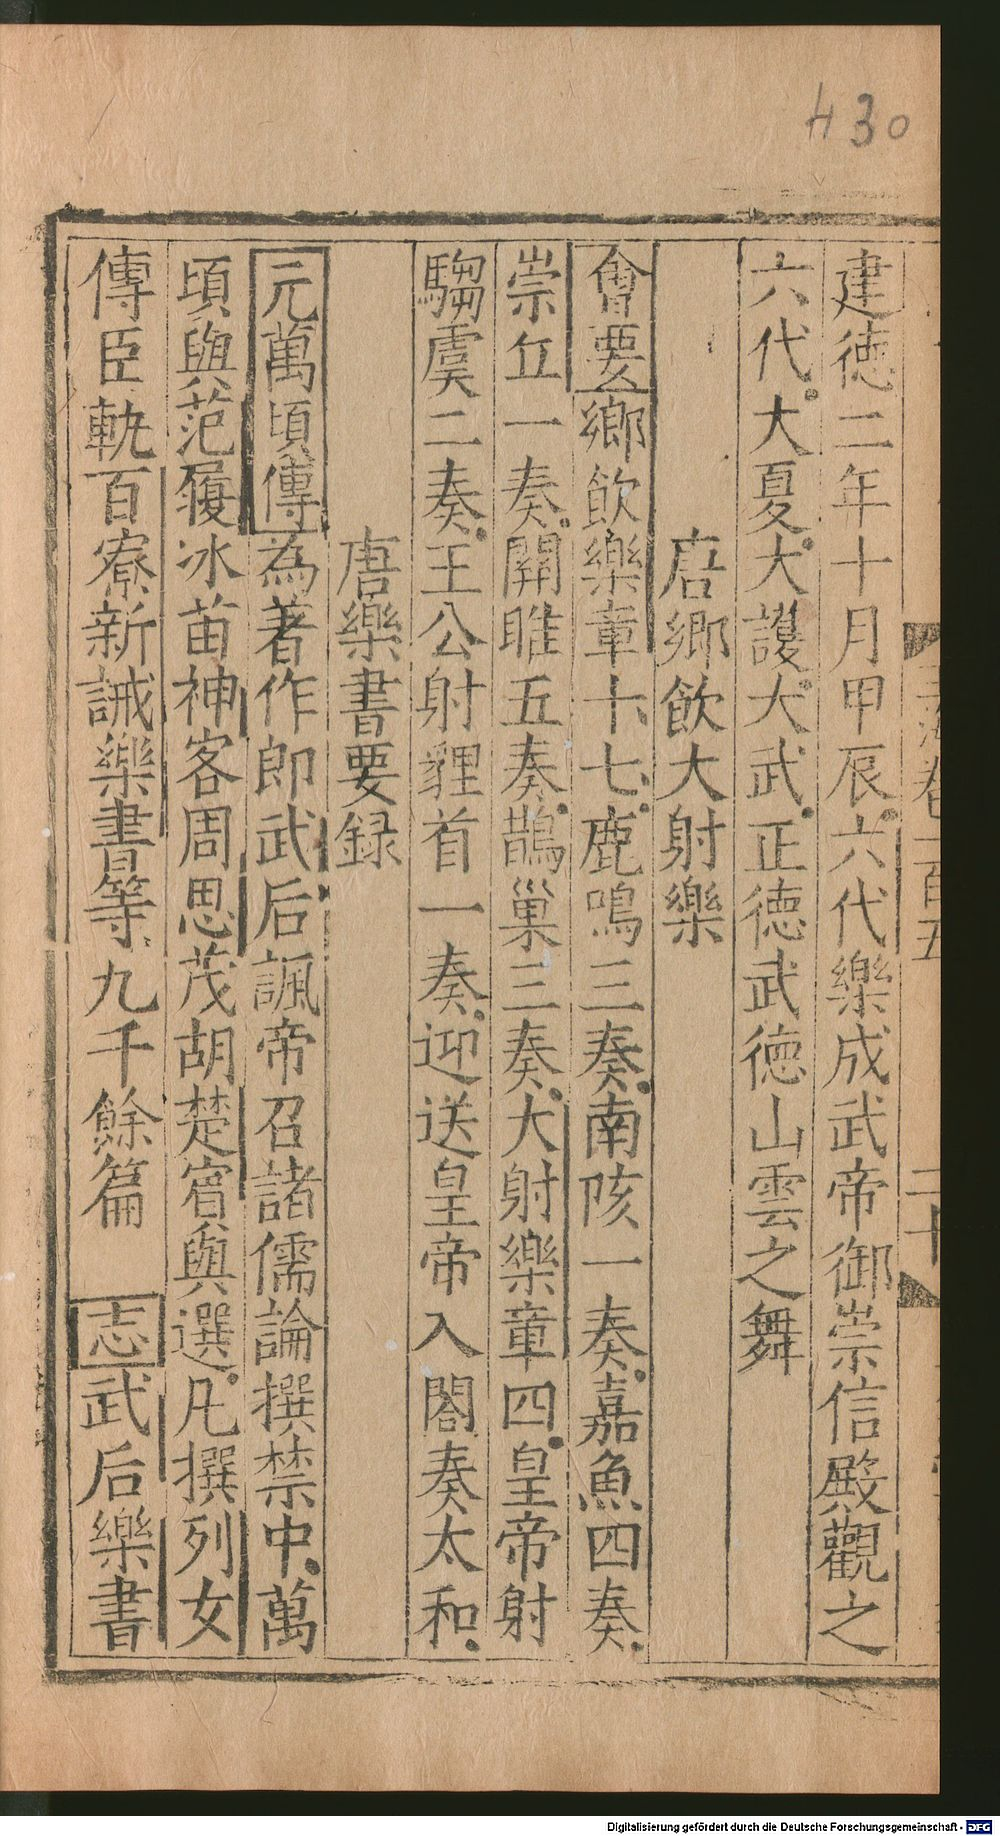 430
建徳二年十月甲辰六代樂成武帝御崇信殿觀之
六代大夏大護大武正德武德山雲之舞
唐鄉飲大射樂
會要鄉飲樂章十七鹿鳴三奏南陔一奏嘉魚四奏
崇丘一奏關雎五奏鵲巢三奏大射樂章四皇帝射
騶虞二奏王公射貍首一奏迎送皇帝入閤奏太和
唐樂書要録
元萬頃傳為著作郎武后諷帝召諸儒論撰禁中萬
頃與范履冰苗神客周思茂胡楚賓與選凡撰列女
傳臣軌百寮新誡樂書等九千餘篇 志武后樂書
Digitalisierung gefördert durch die Deutsche Forschungsgemeinschaft - DFG